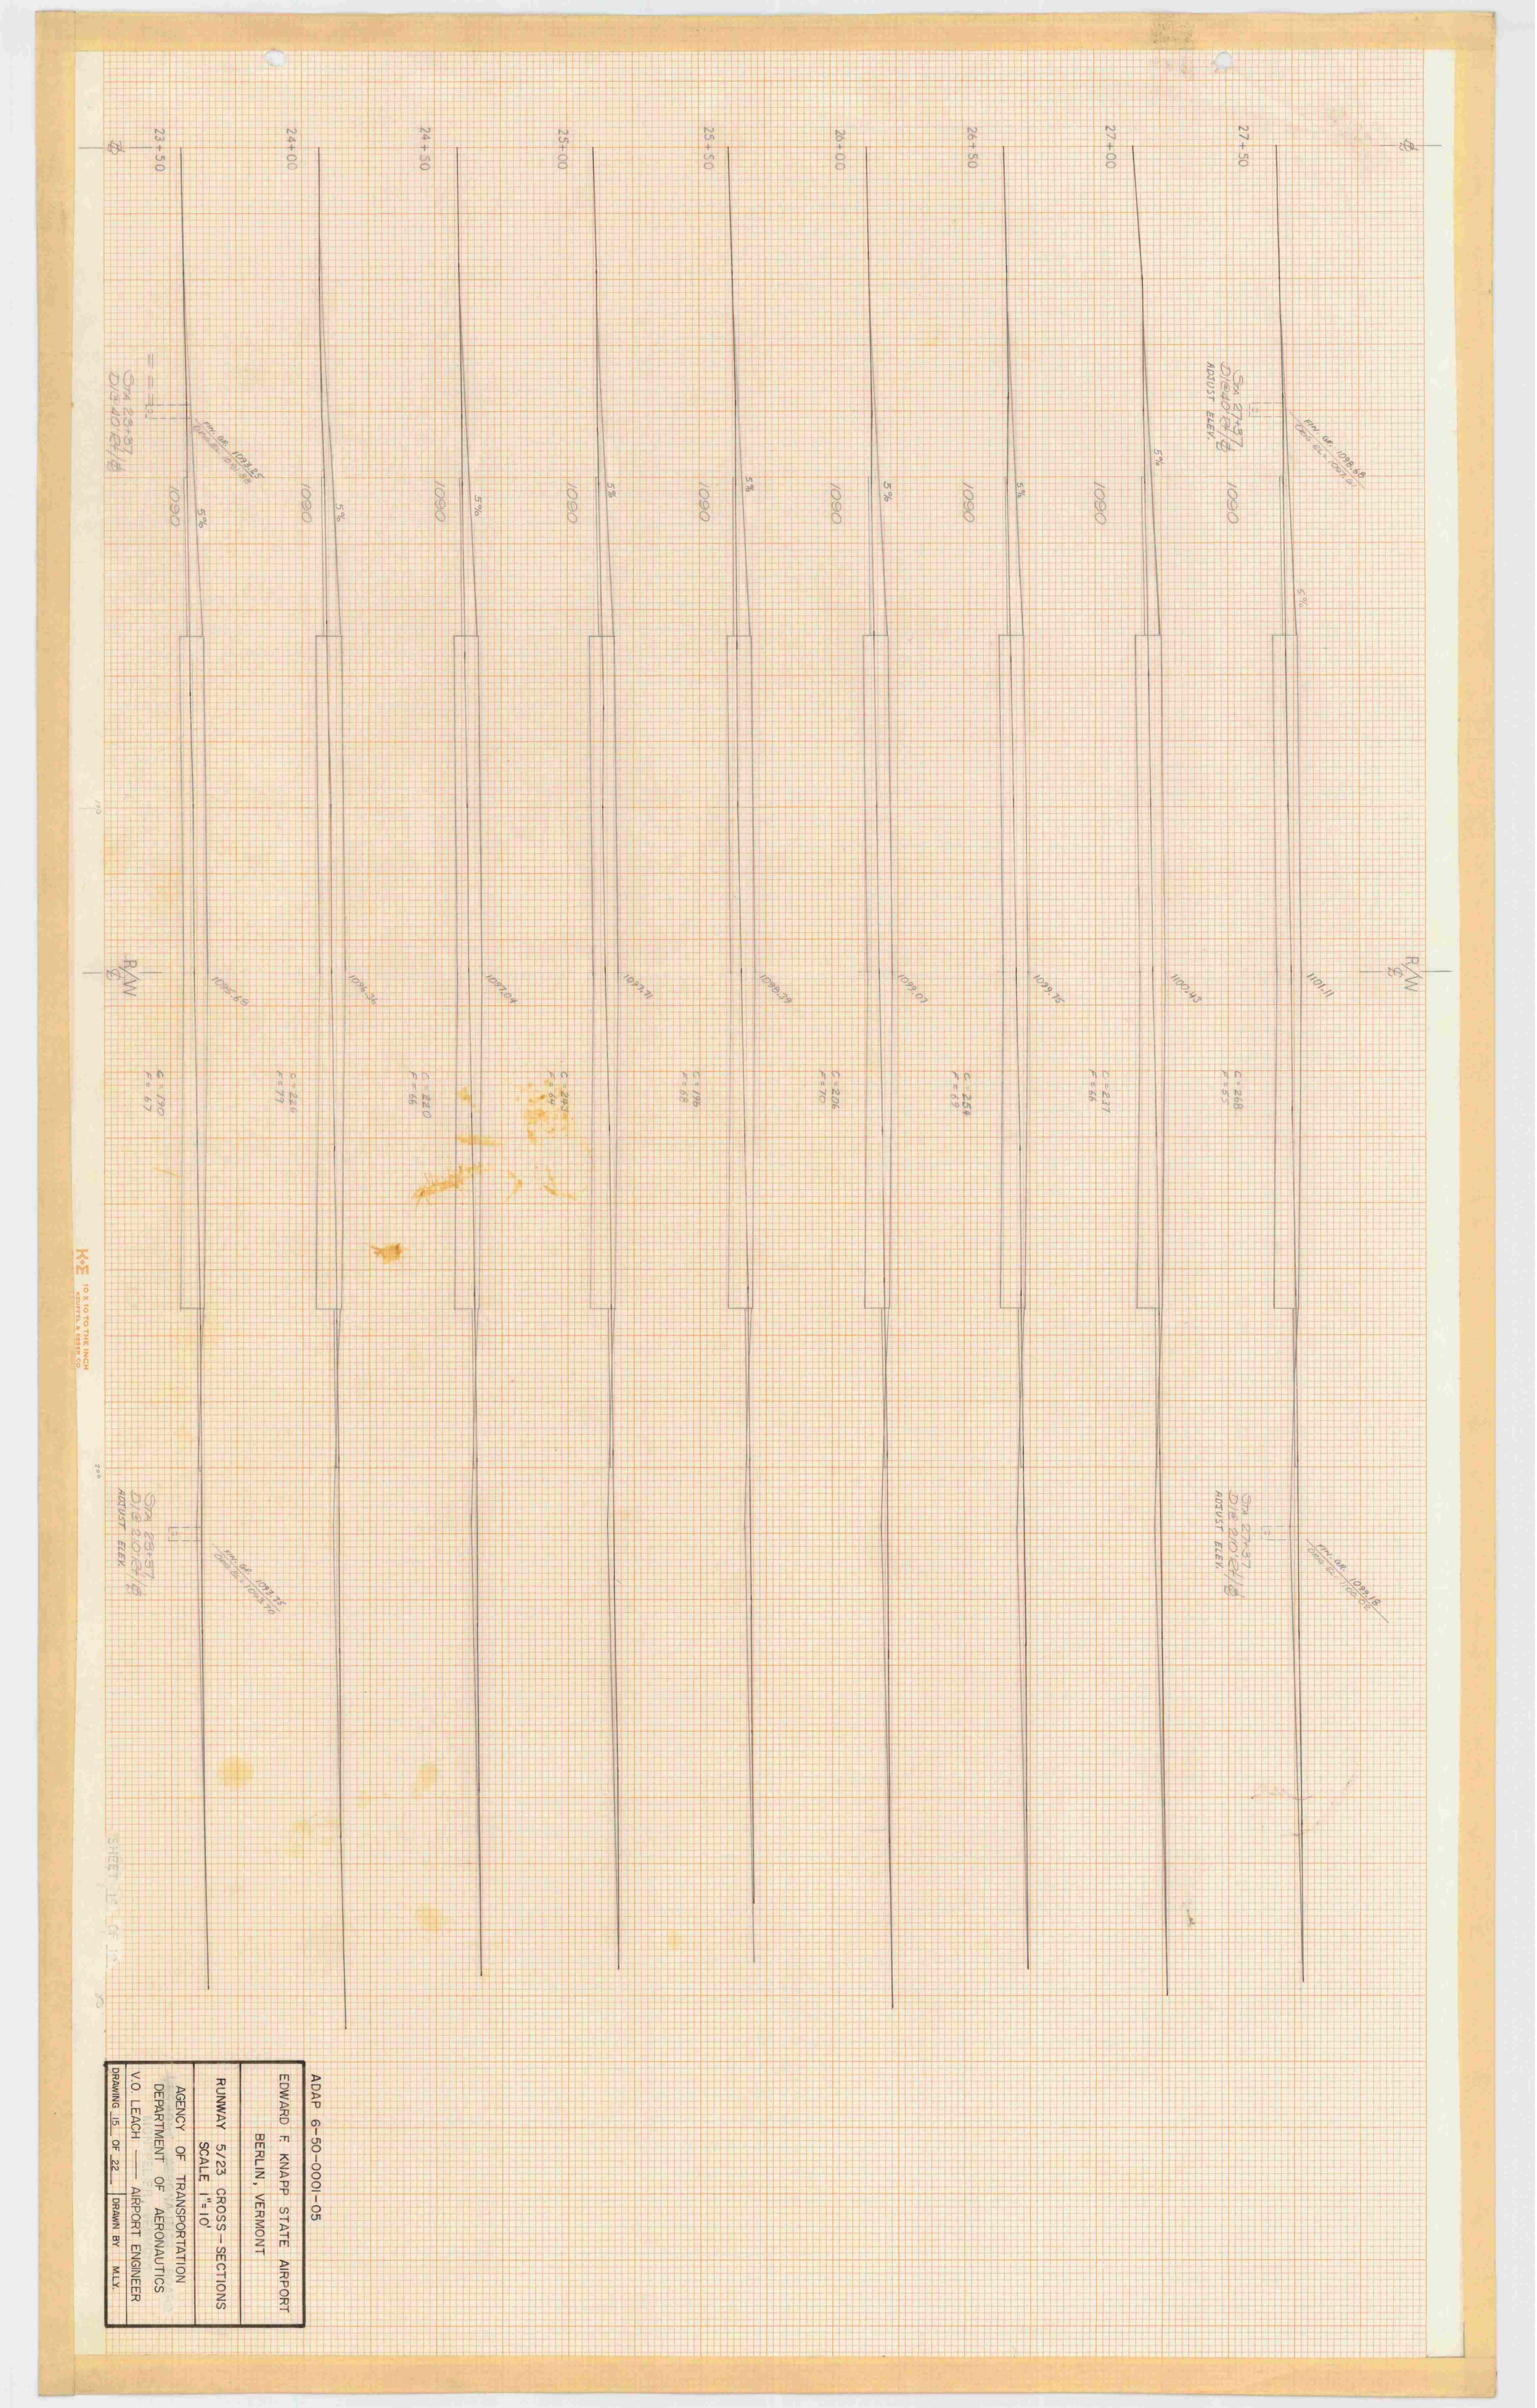 ADAP 6-50-0001-05
EDWARD F. KNAPP STATE AIRPORT
BERLIN, VERMONT
RUNWAY 5/23 CROSS-SECTIONS
SCALE 1"=10'
AGENCY OF TRANSPORTATION
DEPARTMENT OF AERONAUTICS
V.O. LEACH — AIRPORT ENGINEER
DRAWING 15 OF 22 DRAWN BY M.L.Y.
R/W
27+50
1090
5%
1101.11
C=268
F=55
STA 27+37
ADJUST ELEV.
FIN. GR. 1098.68
STA 27+37
ADJUST ELEV.
FIN. GR. 1099.18
27+00
1090
5%
1100.43
C=237
F=66
26+50
1090
5%
1099.75
C=254
F=69
26+00
1090
5%
1099.07
C=206
F=70
25+50
1090
5%
1098.39
C=196
F=68
25+00
1090
5%
1097.71
C=243
F=64
24+50
1090
5%
1097.04
C=220
F=66
24+00
1090
5%
1096.36
C=226
F=79
23+50
1090
5%
1095.68
C=190
F=67
STA 23+37
FIN. GR. 1093.25
STA 23+37
ADJUST ELEV.
FIN. GR. 1093.75
R/W
K+E 10 X 10 TO THE INCH
KEUFFEL & ESSER CO.